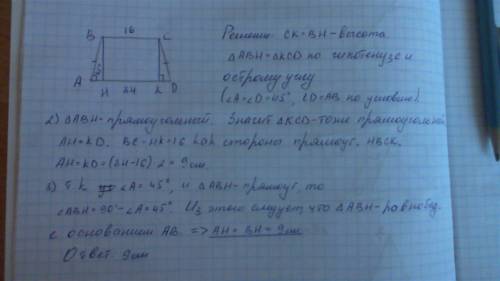 16
B C
45°
A H 24 K D
Решение: CK=BH-высота
△ABH=△KCD по гипотенузе и
острому углу
(∠A=∠D=45°, CD=AB по условию).
2) △ABH-прямоугольный. Значит △KCD-тоже прямоугольный
AH=KD. BC=HK=16 как стороны прямоуг. HBCK.
AH=KD=(24-16) 2= 9см
3) Т. к ∠A=45°, и △ABH-прямоуг, то
∠ABH=90°-∠A=45°. Из этого следует что △ABH-равнобед.
с основанием AB. => AH=BH=9см
Ответ 9см